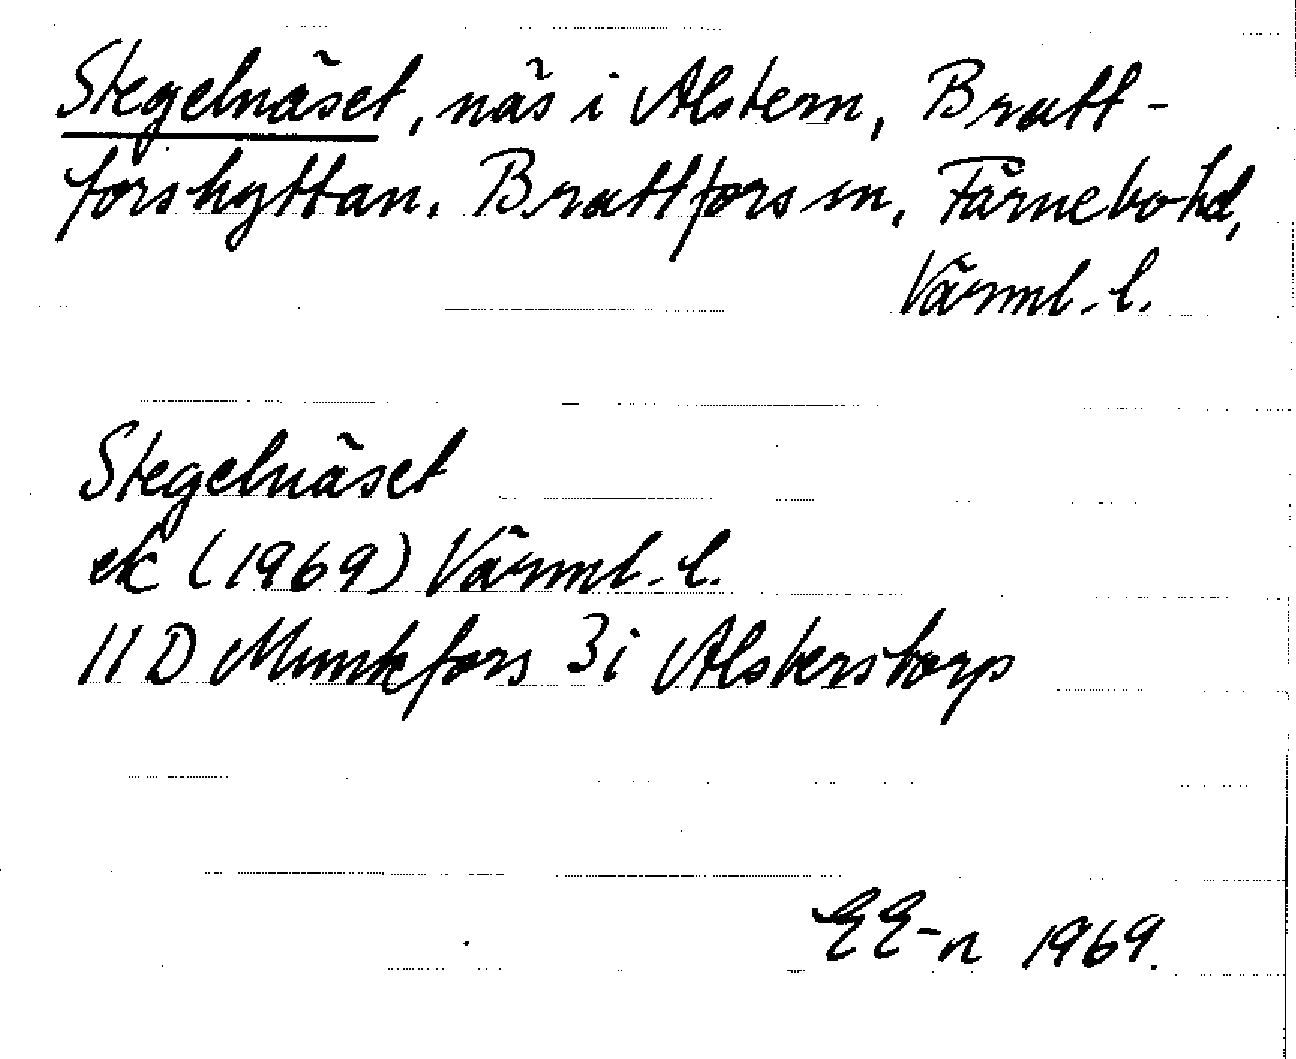 Stegelnäset, näs i Alstern, Bratt-
forshyttan. Brattfors sn, Färnebo hd,
Värml. l.
Stegelnäset
ek (1969) Värml. l.
11D Munkfors 3i Alsterstorp
EE-n 1969.